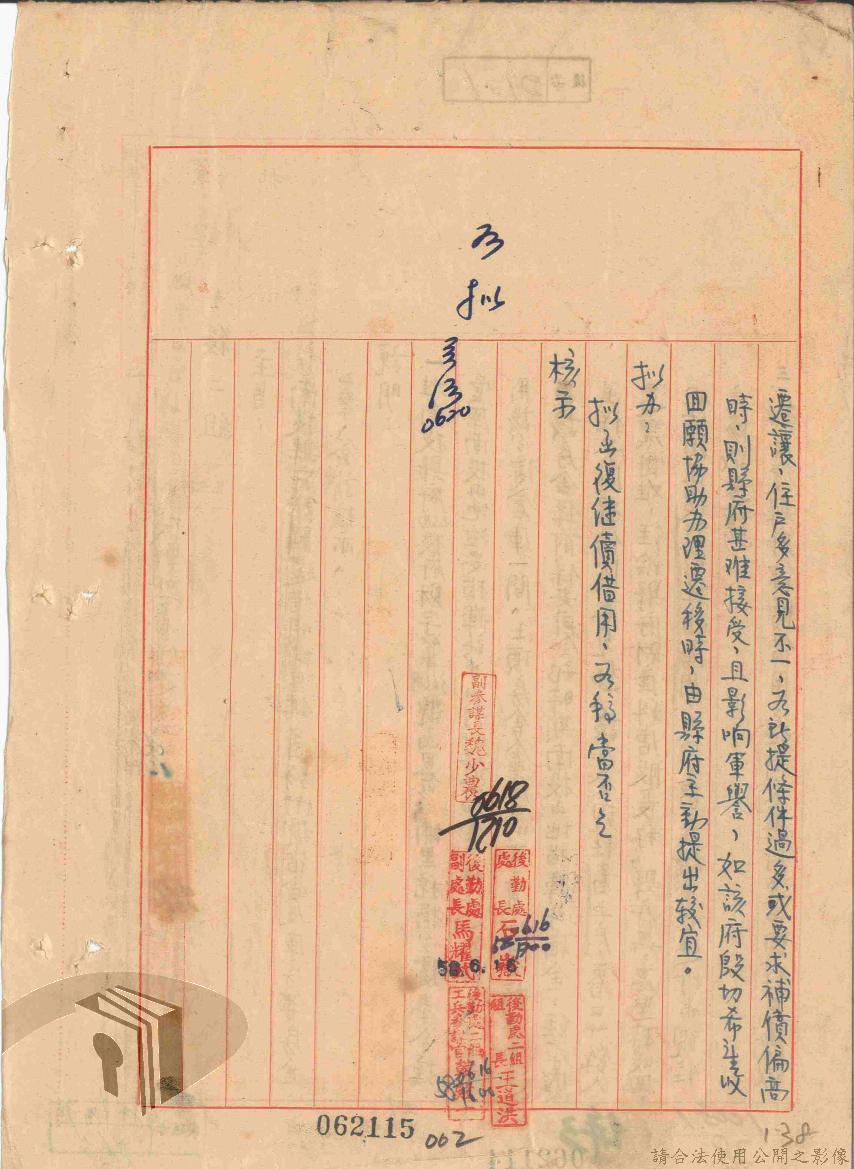 遷讓,住戶多意見不一,右所提條件過多或要求補償偏高
時,則縣府甚難接受,且影响軍譽,如該府殷切希望收
回願協助办理遷移時,由縣府主動提出較宜。
拟办:
拟函復继續借用,右稿當否乞
核示
拟
0620
副參謀長魏
0618
1210
後勤處
處長石
0616
後勤處
副處長馬耀
58.6.16
後勤處二組
組長王道洪
後勤處二組
0616
1600
062115
002
138
062114
請合法使用公開之影像